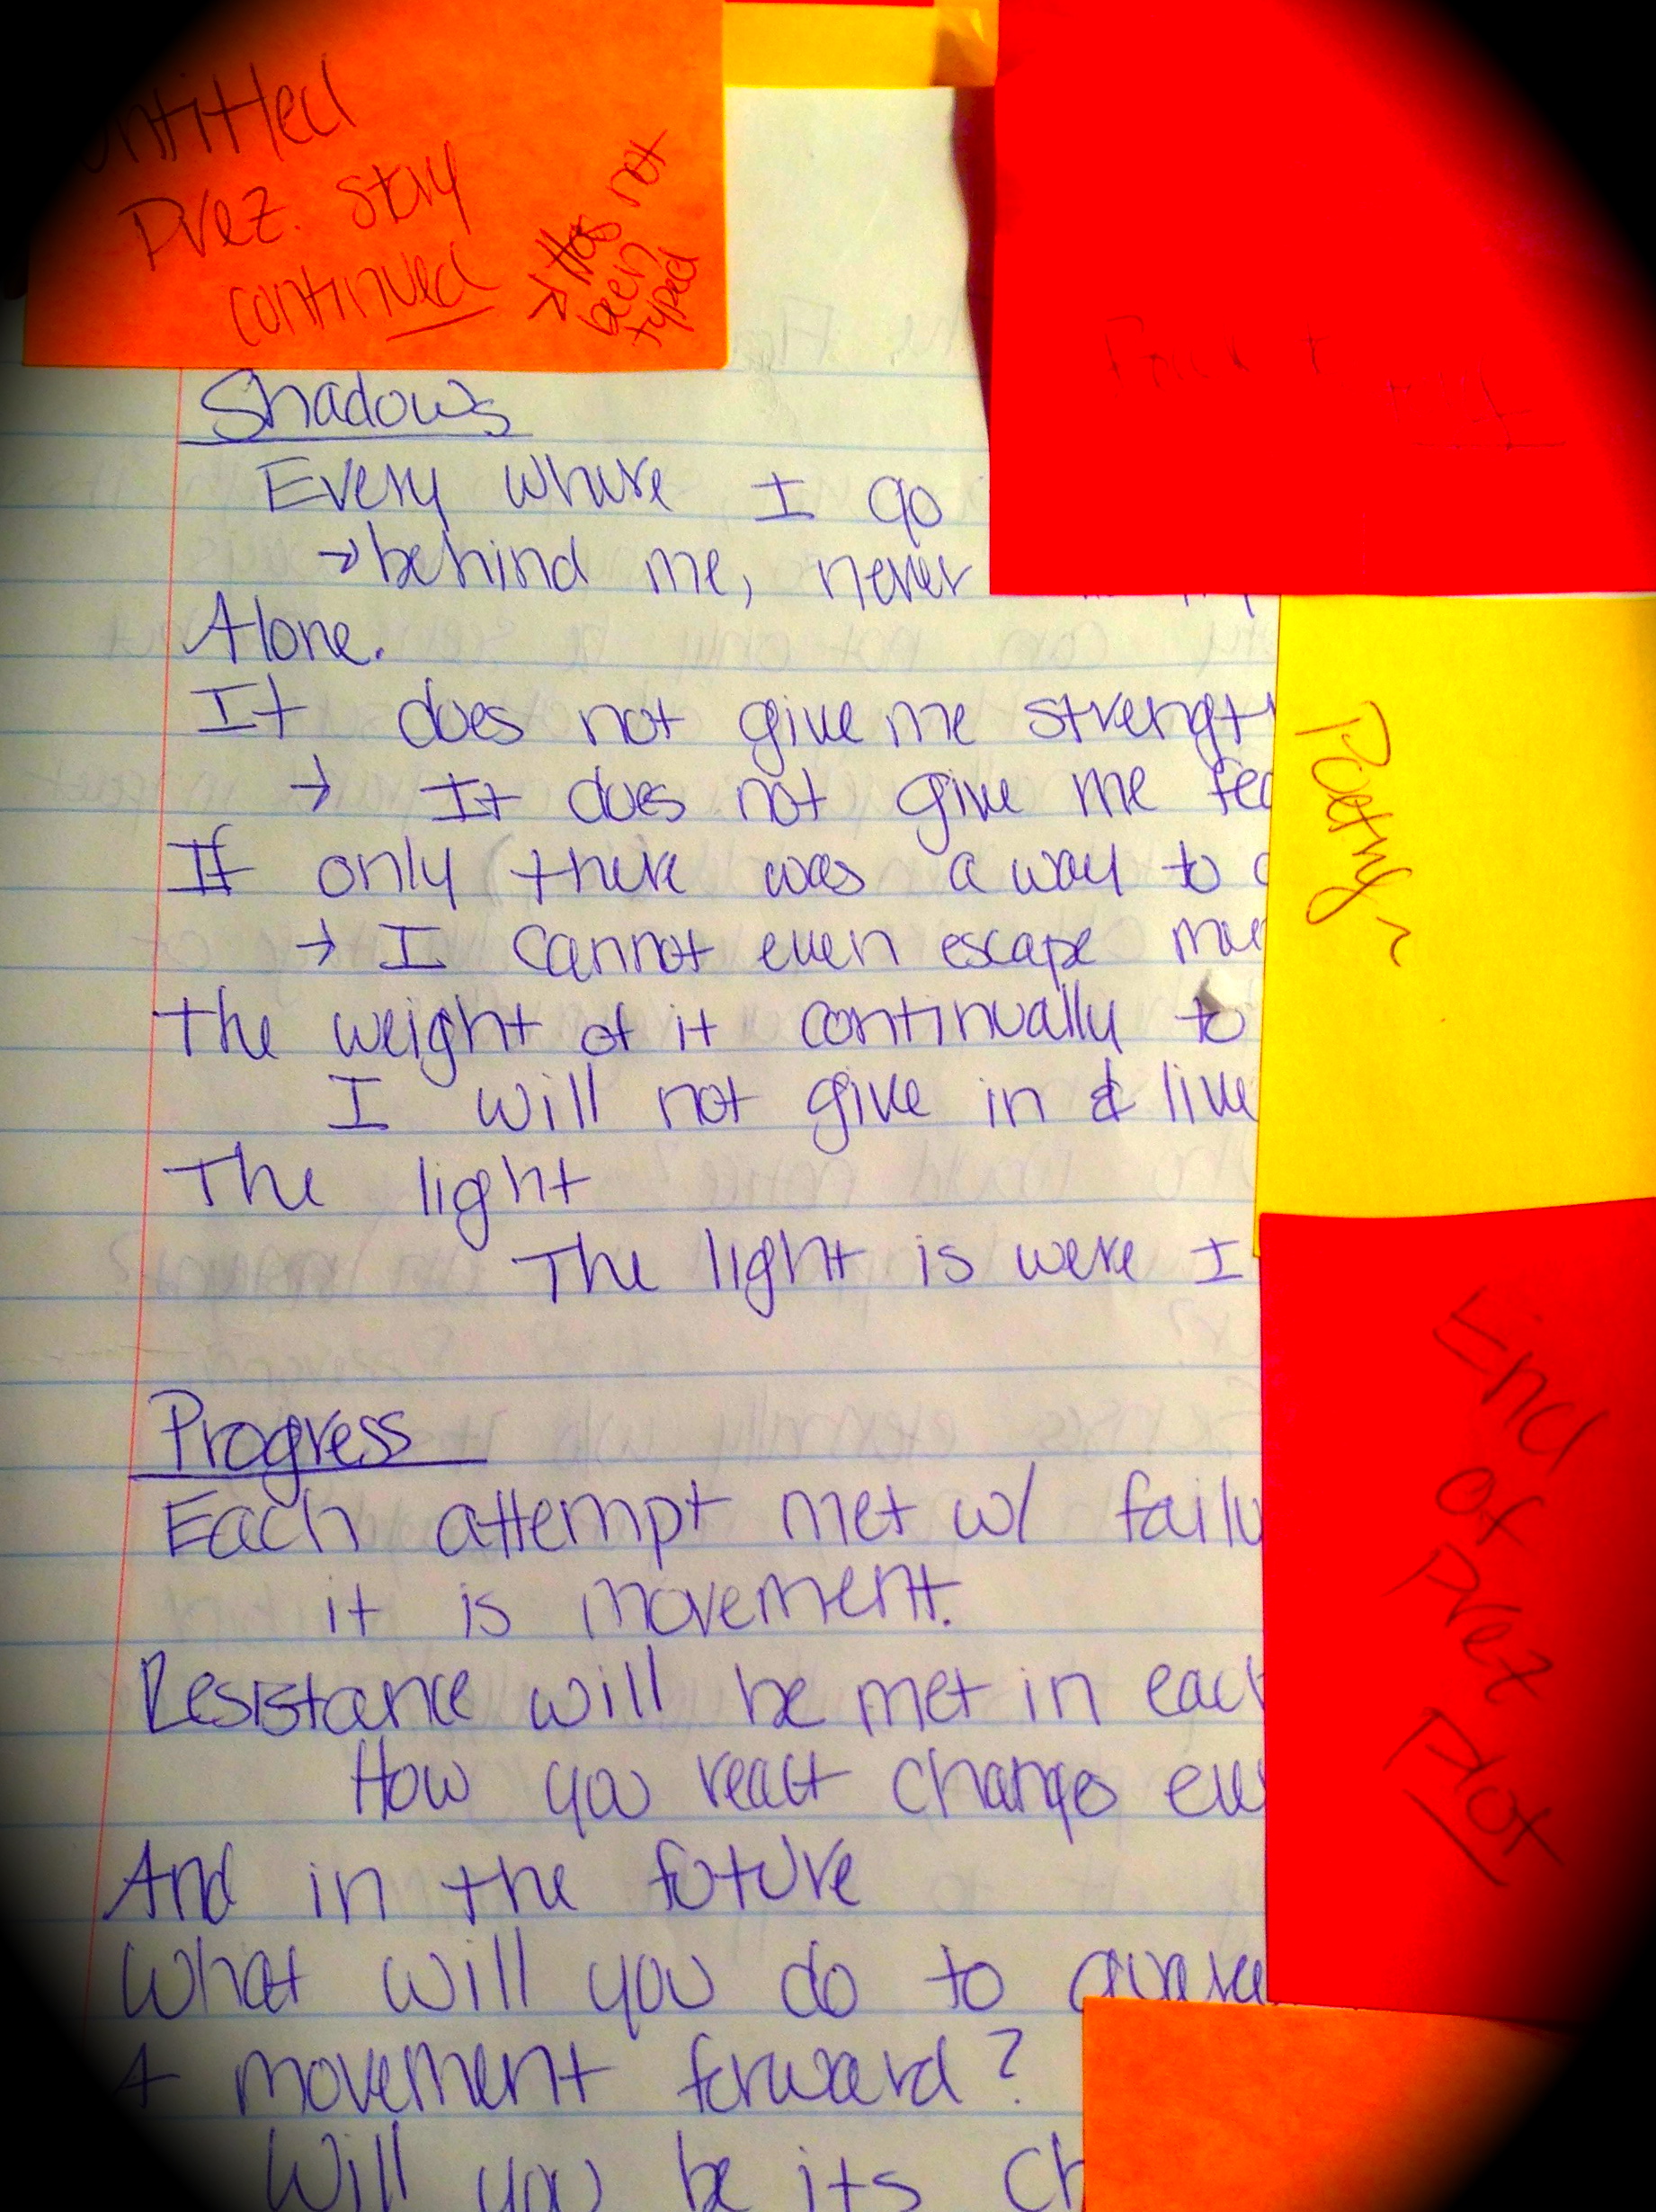 Untitled
Prez. story
continued
→ Has not
been
typed
Shadows
Every where I go
→ behind me, never
Alone.
It does not give me strengt
→ It does not give me fea
If only there was a way to
→ I cannot even escape
The weight of it continually to
I will not give in & live
The light
The light is were I
Progress
Each attempt met w/ failu
it is movement.
Resistance will be met in each
How you react changes eve
And in the future
What will you do to
A movement forward?
Will you be its ch
Poetry~
End
of
Prez
Plot